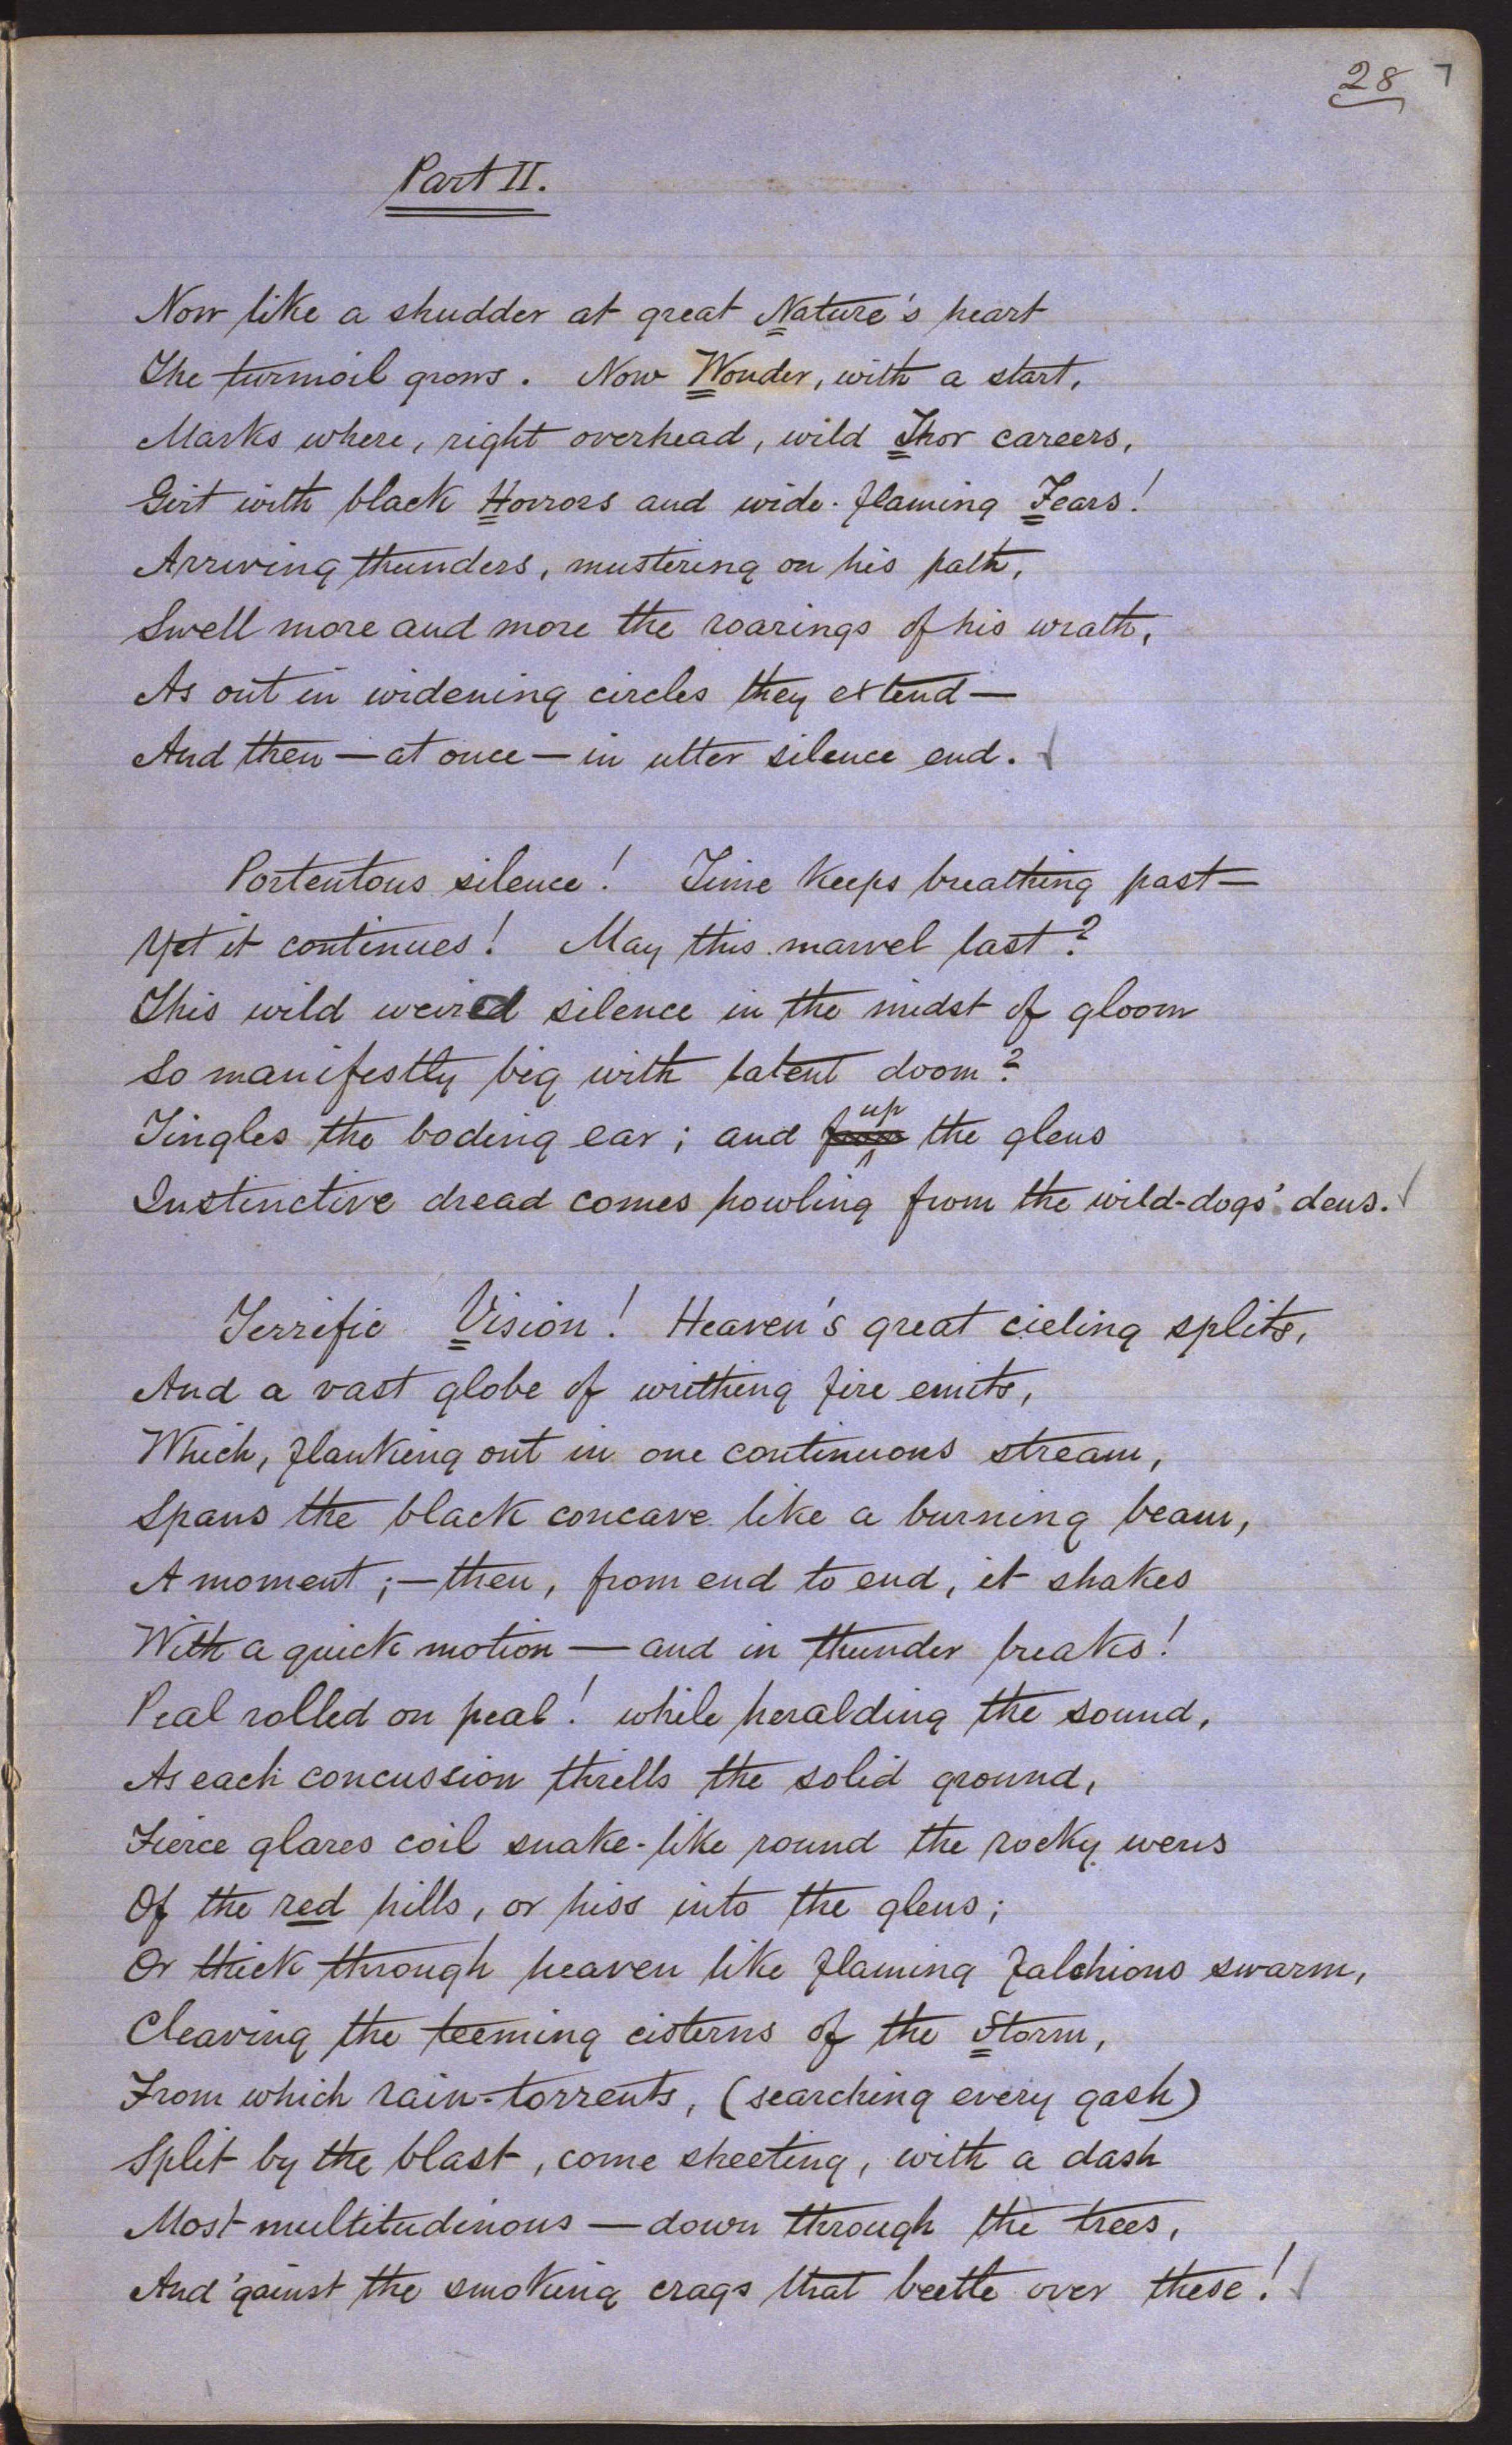 28 7
Part II.
Now like a shudder at great Nature's heart
The turmoil grows. Now Wonder, with a start,
Marks where, right overhead, wild Thor careers,
Girt with black Horrors and wide-flaming Fears!
Arriving thunders, mustering on his path,
Swell more and more the roarings of his wrath,
As out in widening circles they extend—
And then—at once—in utter silence end.
Portentous silence! Time keeps breathing past—
Yet it continues! May this marvel last?
This wild weird silence in the midst of gloom
So manifestly big with latent doom?
Tingles the boding ear; and from up the glens
Instinctive dread comes howling from the wild-dogs' dens.
Terrific Vision! Heaven's great cieling splits,
And a vast globe of writhing fire emits,
Which, flanking out in one continuous stream,
Spans the black concave like a burning beam,
A moment;—then, from end to end, it shakes
With a quick motion—and in thunder breaks!
Peal rolled on peal! while heralding the sound,
As each concussion thrills the solid ground,
Fierce glares coil snake-like round the rocky wens
Of the red hills, or hiss into the glens;
Or thick through heaven like flaming falchions swarm,
Cleaving the teeming cisterns of the Storm,
From which rain-torrents, (searching every gash)
Split by the blast, come sheeting, with a dash
Most multitudinous—down through the trees,
And 'gainst the smoking crags that beetle over these!